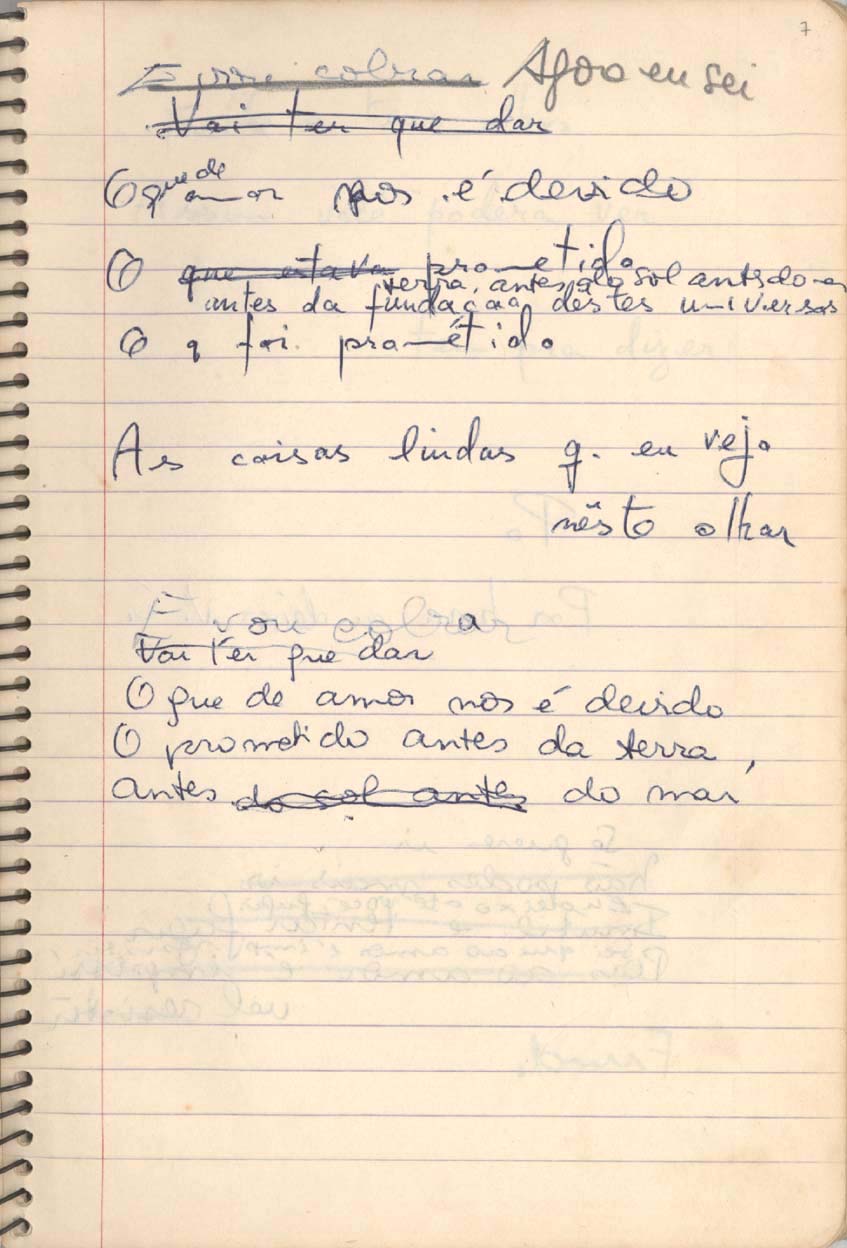 7
E vou cobrar Agora eu sei
Vai ter que dar
O que de amor nos é devido
O que estava prometido
terra, antes do sol antes do
antes da fundação destes universos
O q foi prometido
As coisas lindas q. eu vejo
nêsto olhar
E vou cobra
Vai ter que dar
O que de amor nos é devido
O prometido antes da terra,
antes do sol antes do mar